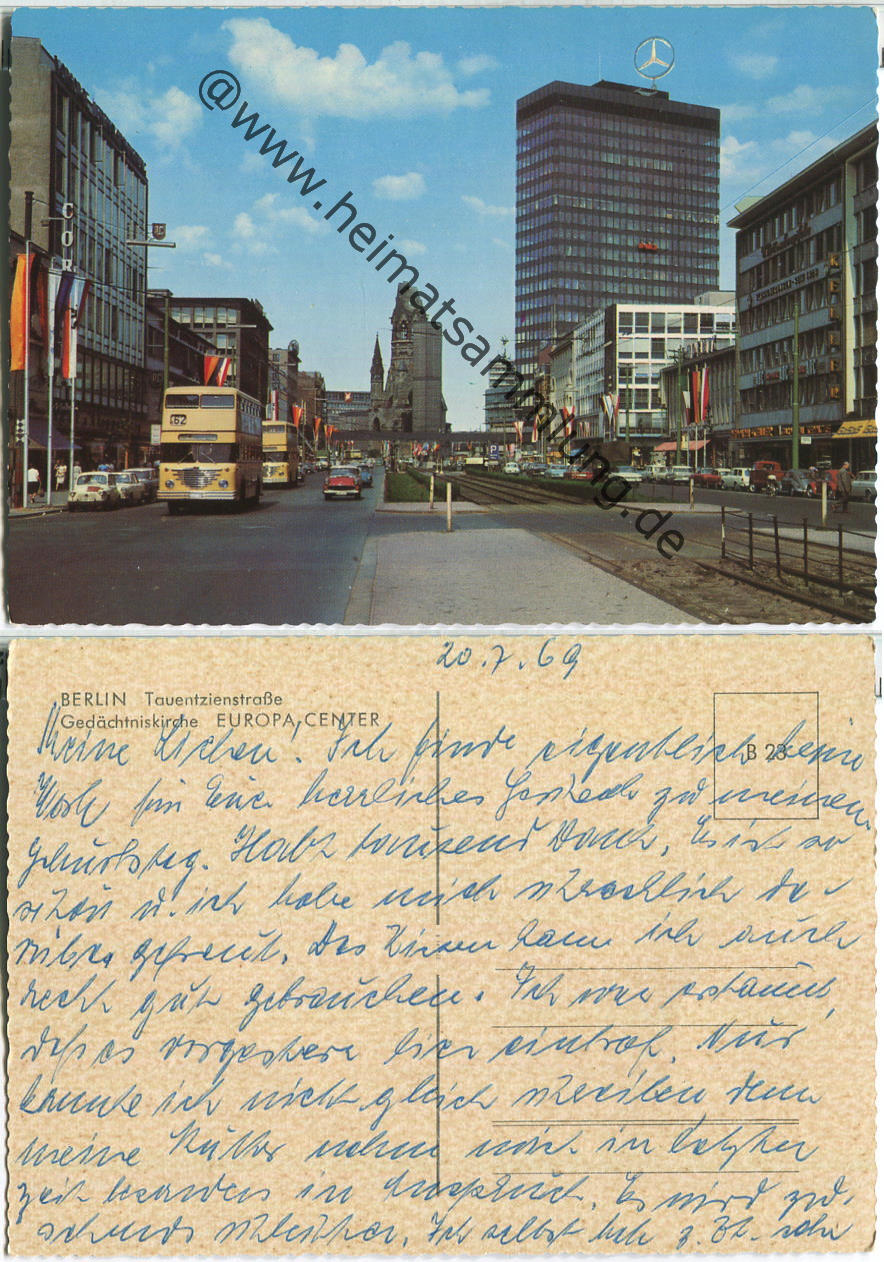 COR
62
KELLER
P
@www.heimatsammlung.de
20.7.69
BERLIN Tauentzienstraße
Gedächtniskirche EUROPA-CENTER
B 23
Meine Lieben! Ich finde eigentlich keine
Worte für Euer herzliches Gedenken zu meinem
Geburtstag. Habt tausend Dank. Es ist so
schön u. ich habe mich schrecklich da-
rüber gefreut. Das Kissen kann ich auch
recht gut gebrauchen. Ich war erstaunt,
daß es vorgestern hier eintraf. Nur
konnte ich nicht gleich schreiben denn
meine Mutter nahm mich in letzter
Zeit besonders in Anspruch. Es wird zu-
sehends schlechter. Ich selbst habe z. Zt. sehr